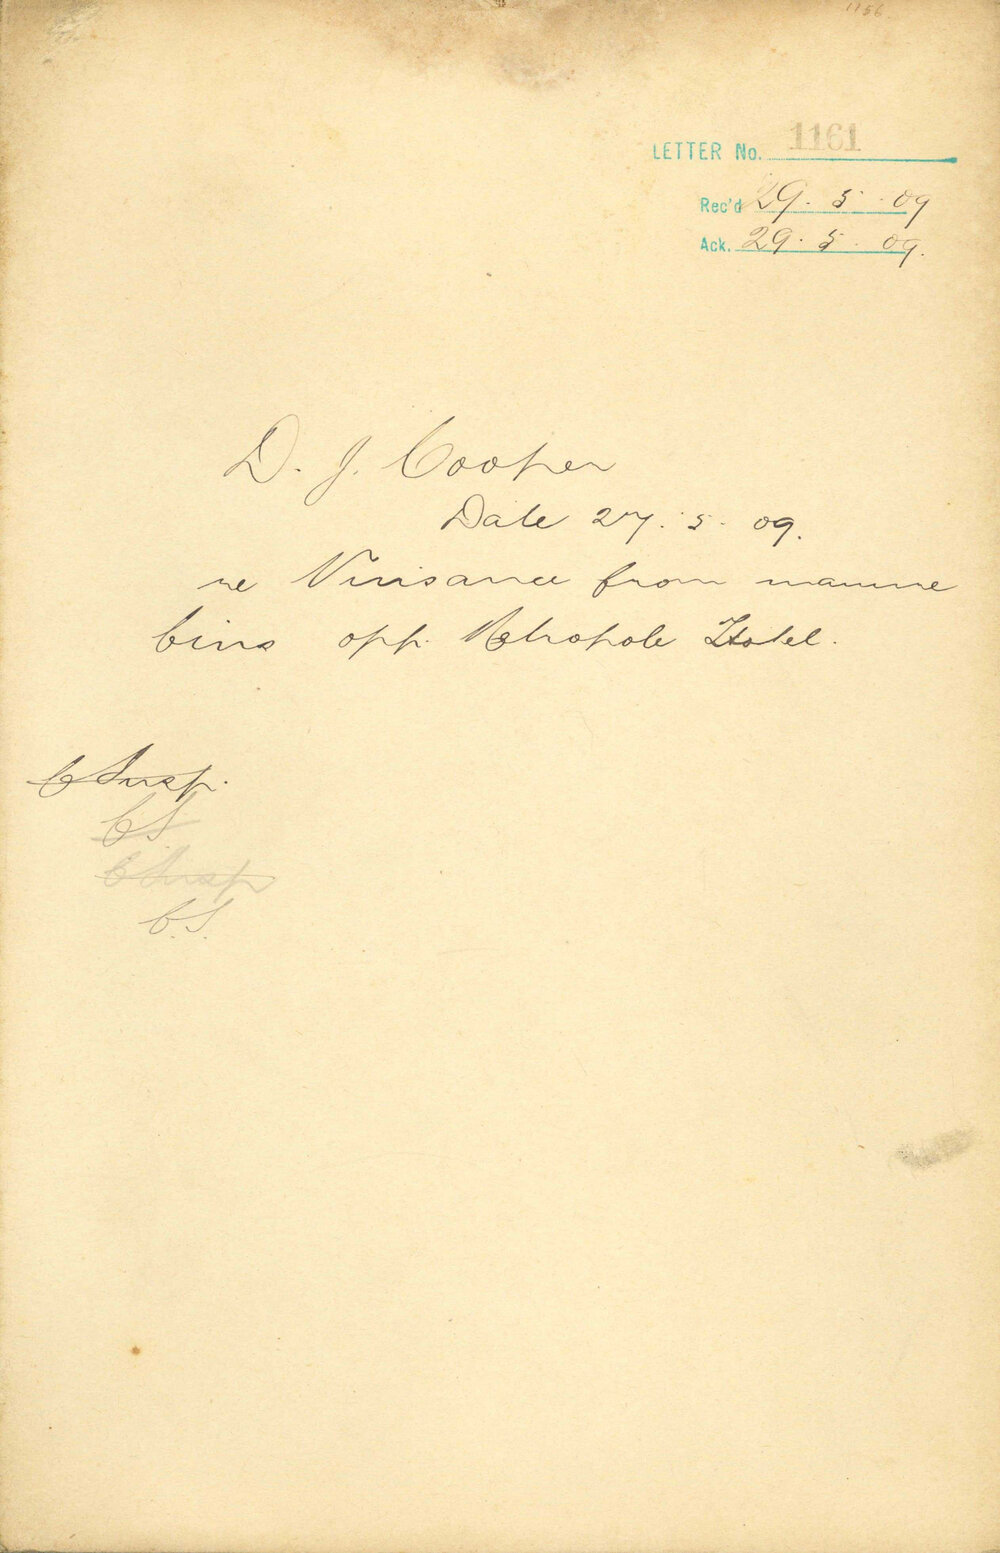 1156
LETTER No. 1161
Rec'd 29.5.09
Ack. 29.5.09.
D. J. Cooper
Date 27.5.09.
re Nuisance from manure
bins opp. Metropole Hotel.
C Insp.
C.S.
C Insp
C.S.